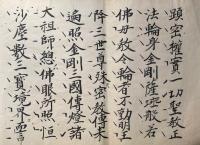 顕密権實一切聖教正
法輪身金剛薩埵般若
佛母教令輪者不動明王
降三世尊殊密教傳來
遍照金剛三國傳燈諸
大祖師總佛眼所照恒
沙塵數三寳境界而言